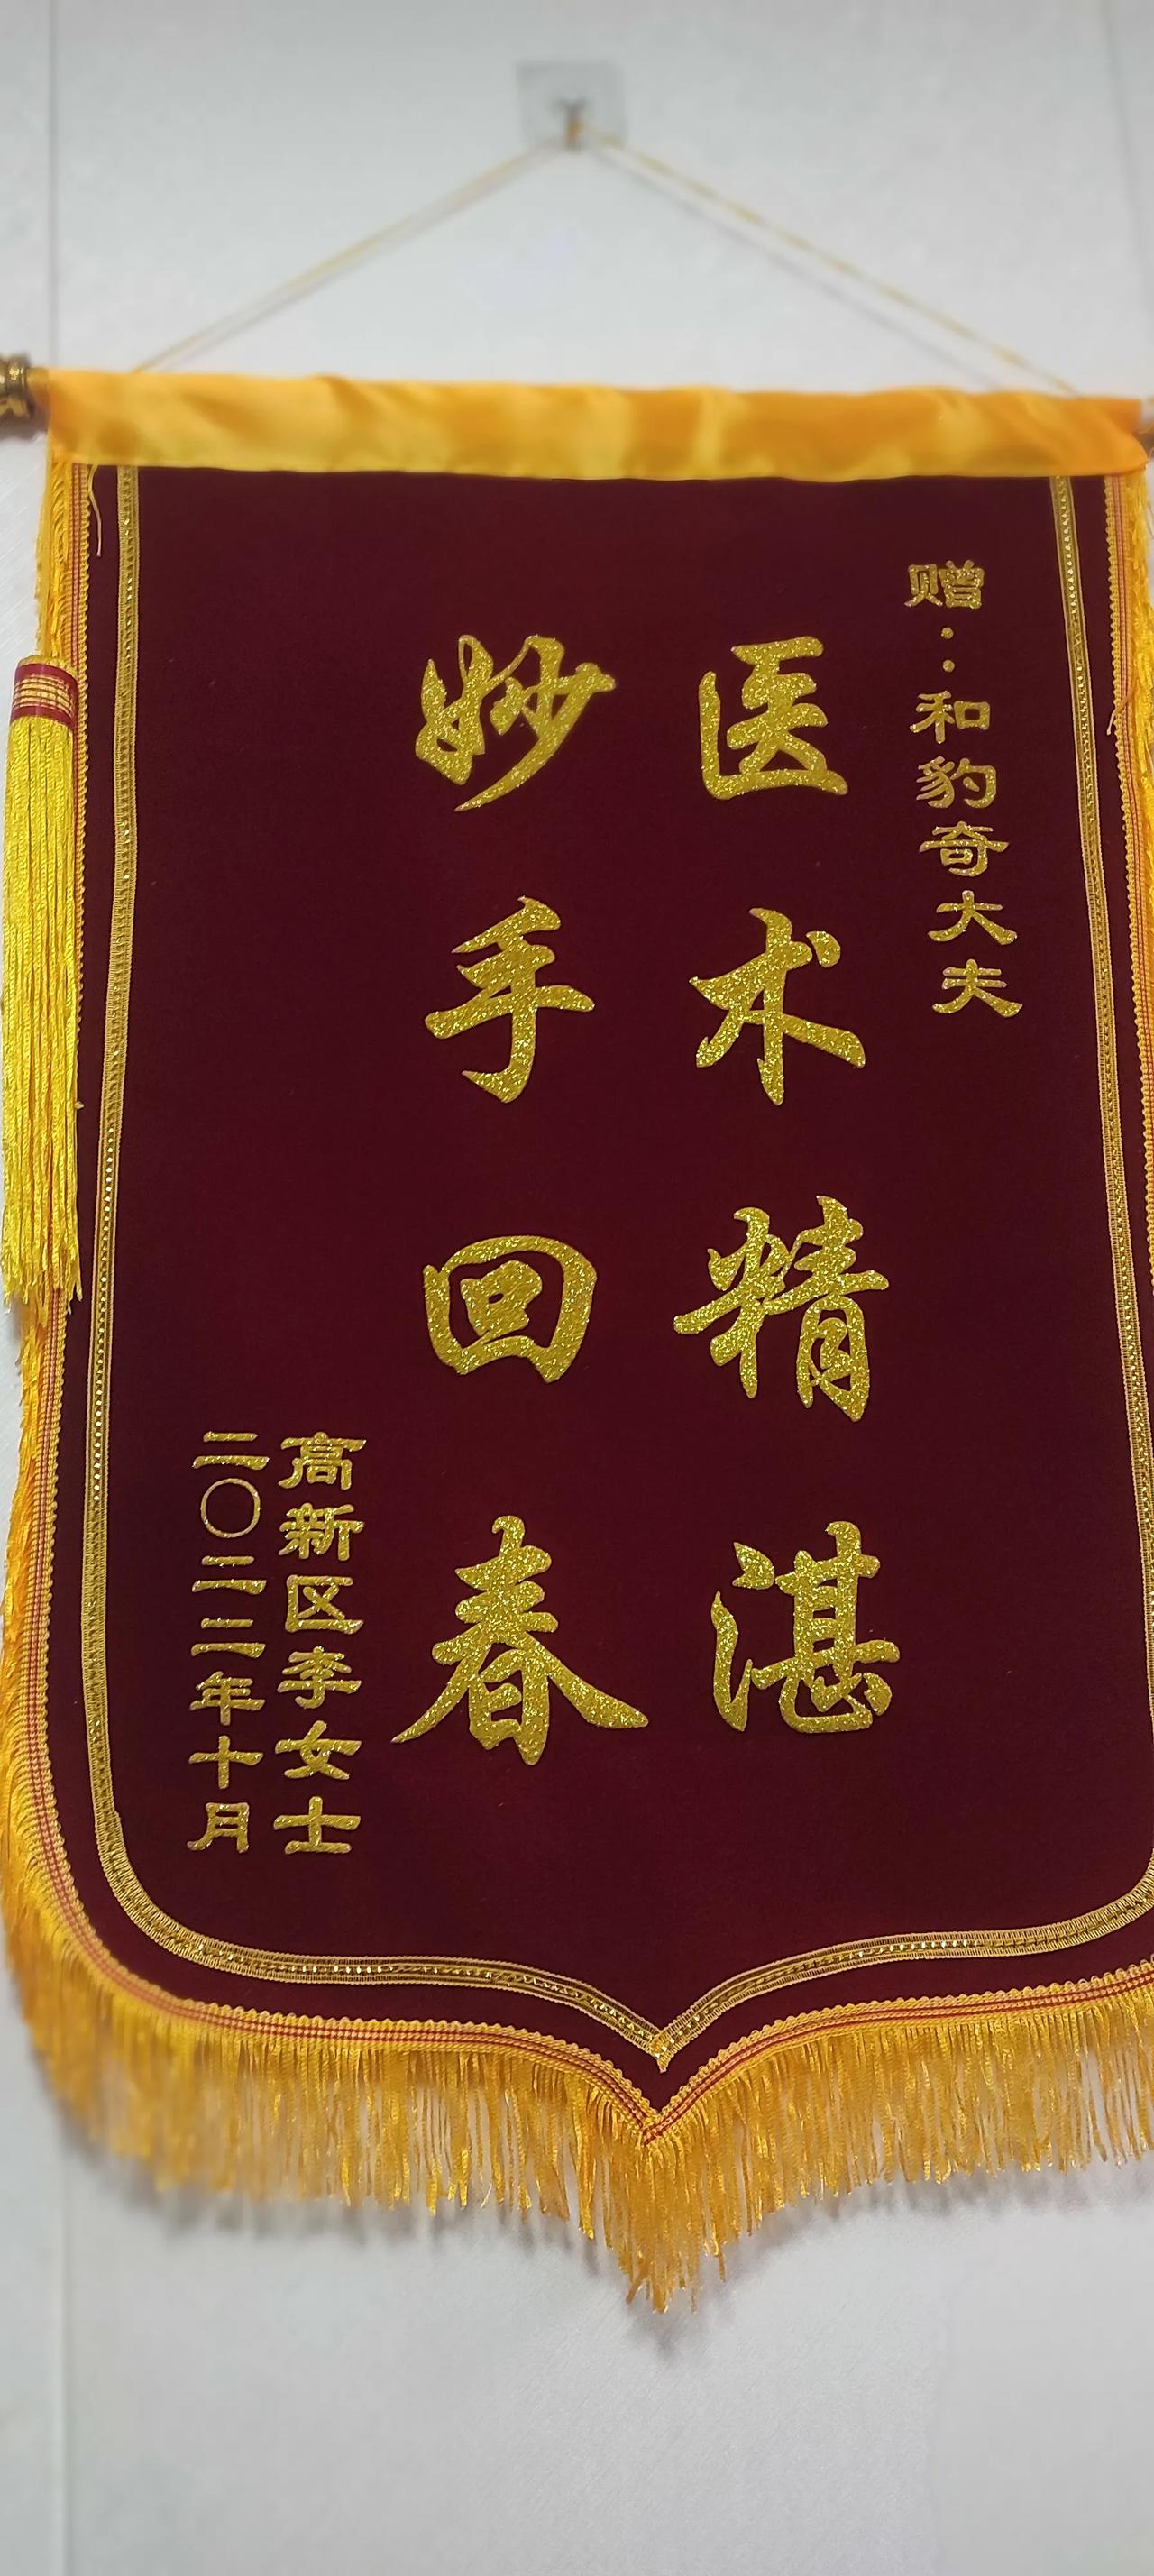 赠：和豹奇大夫
医术精湛
妙手回春
高新区李女士
二〇二二年十月